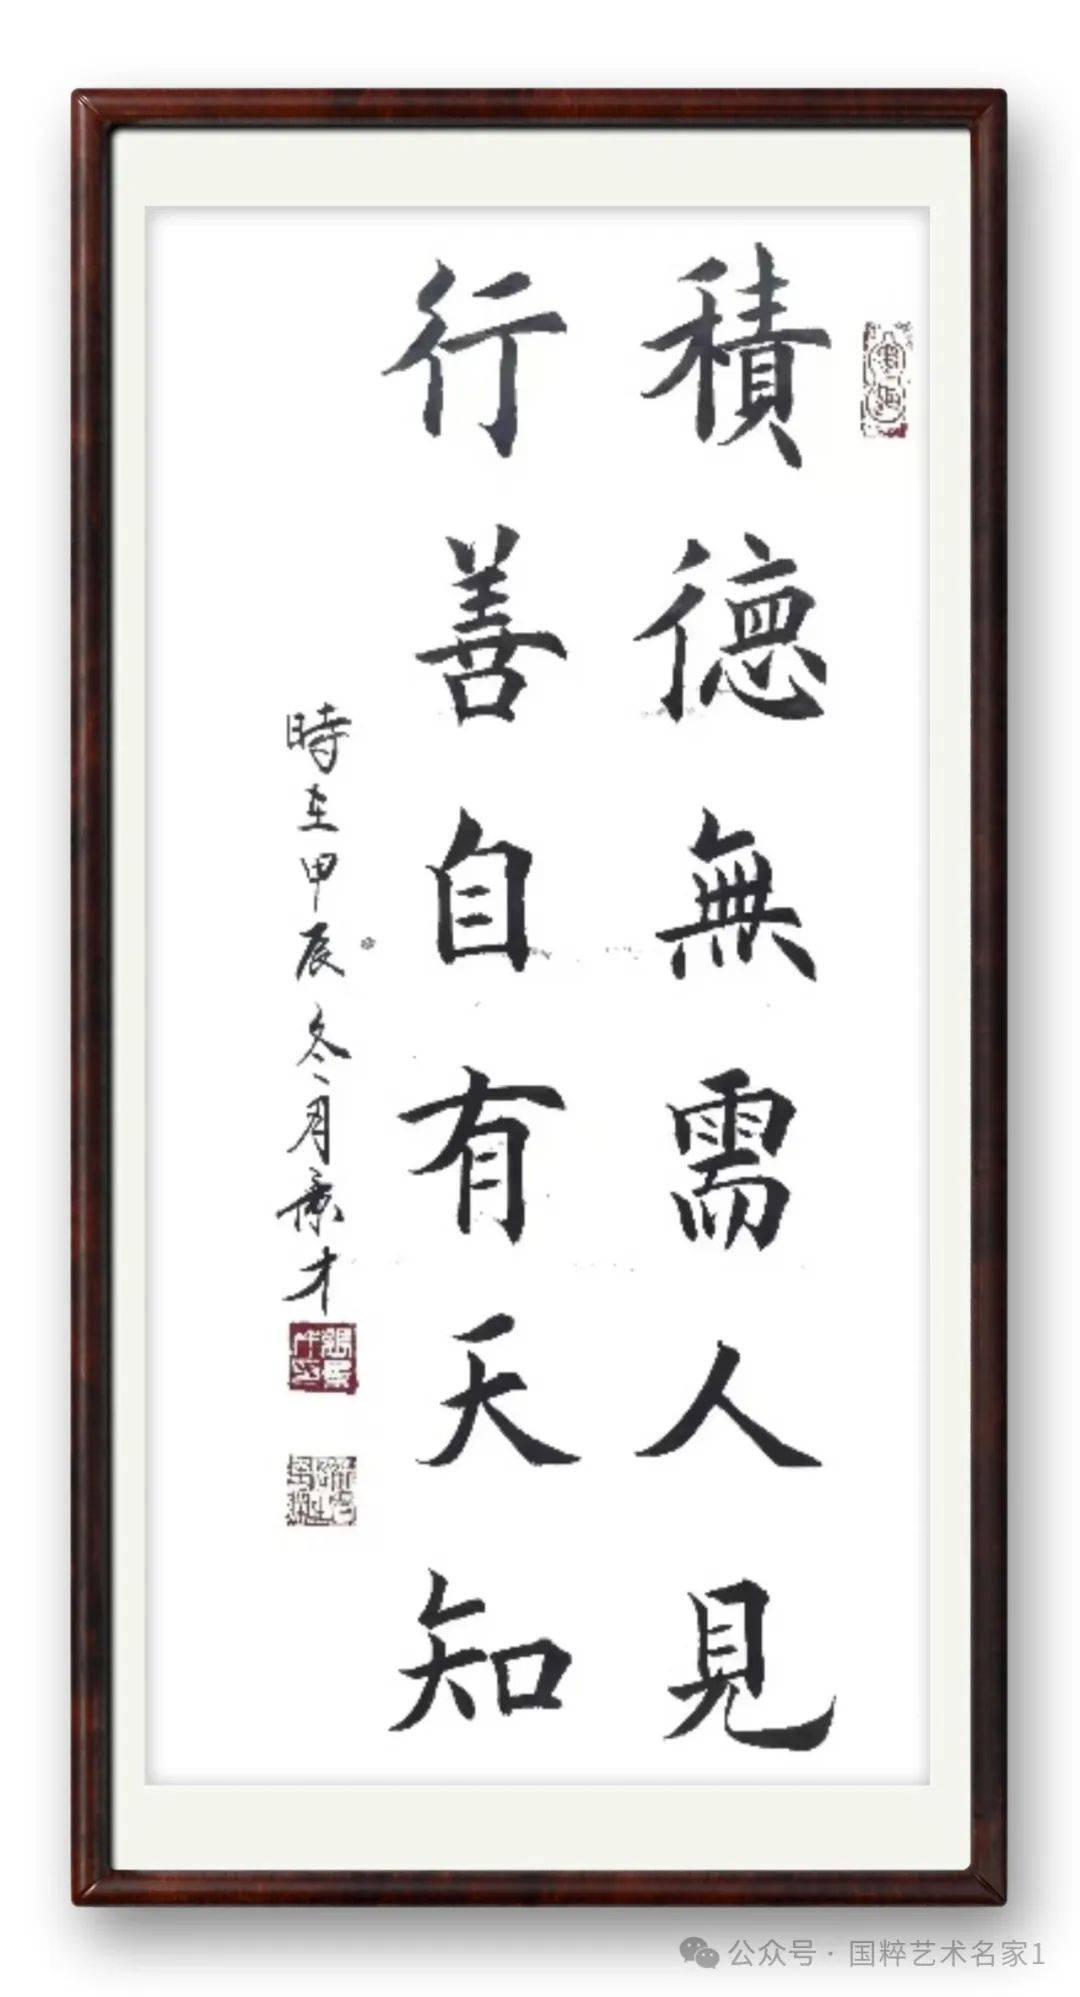 積德無需人見
行善自有天知
時在甲辰冬月景才
公众号·国粹艺术名家1